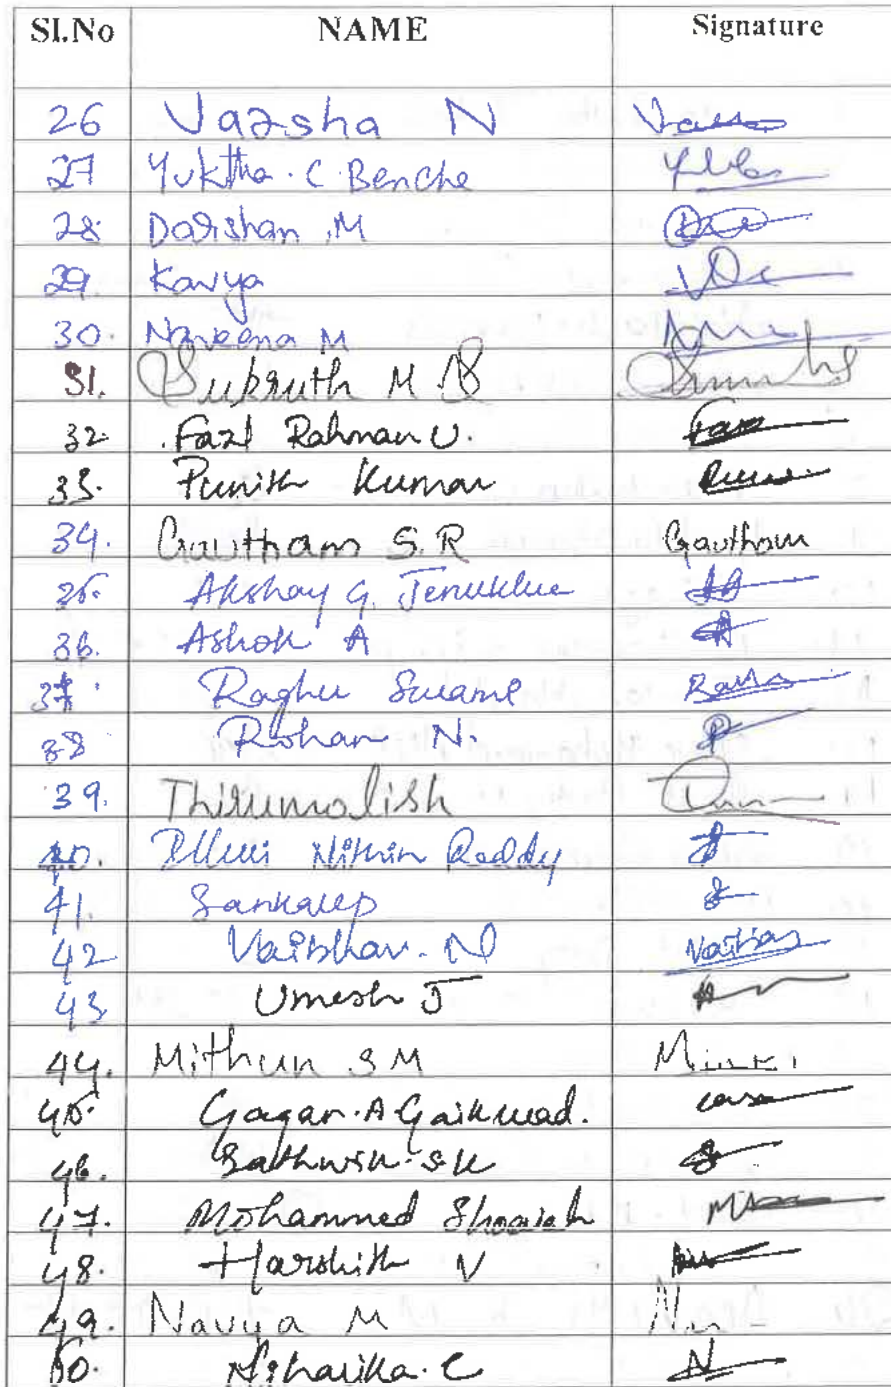 Sl.No NAME Signature
26 Varsha N
27 Yuktha . C . Benche
28. Darshan . M
29. Kavya
30. Naveena M
31. Sukruth M . B
32 . Fazl Rahman U.
33. Punith Kumar
34. Gautham S. R Gautham
35. Akshay G. Jenukllue
36. Ashok A
37. Raghu Swame
38 Rohan N.
39. Thirumalish
40. Nithin Reddy
41. Sankalp
42 Vaibhav . N Vaibhav
43 Umesh J
44. Mithun S M
45. Gagan . A Gaikwad.
46. Sathwik . S K
47. Mohammed Shoaib
48. Harshith V
49. Navya M
50. Niharika . C